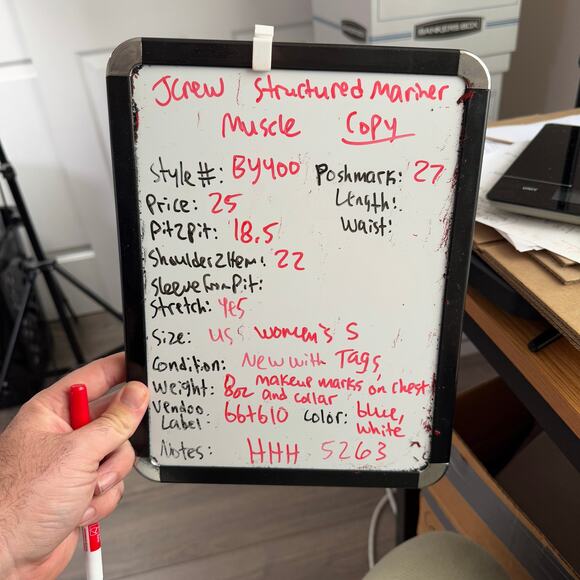 BANKERS BOX
JCrew / Structured Mariner
Muscle Copy
Style#: BY400 Poshmark: 27
Price: 25 Length:
Pit2Pit: 18.5 Waist:
Shoulder2Hem: 22
SleeveFromPit:
Stretch: yes
Size: US women's S
Condition: New with Tags,
makeup marks on chest
Weight: 8oz and collar
Vendoo Label: 66+610 Color: blue, white
Notes: HHH 5263